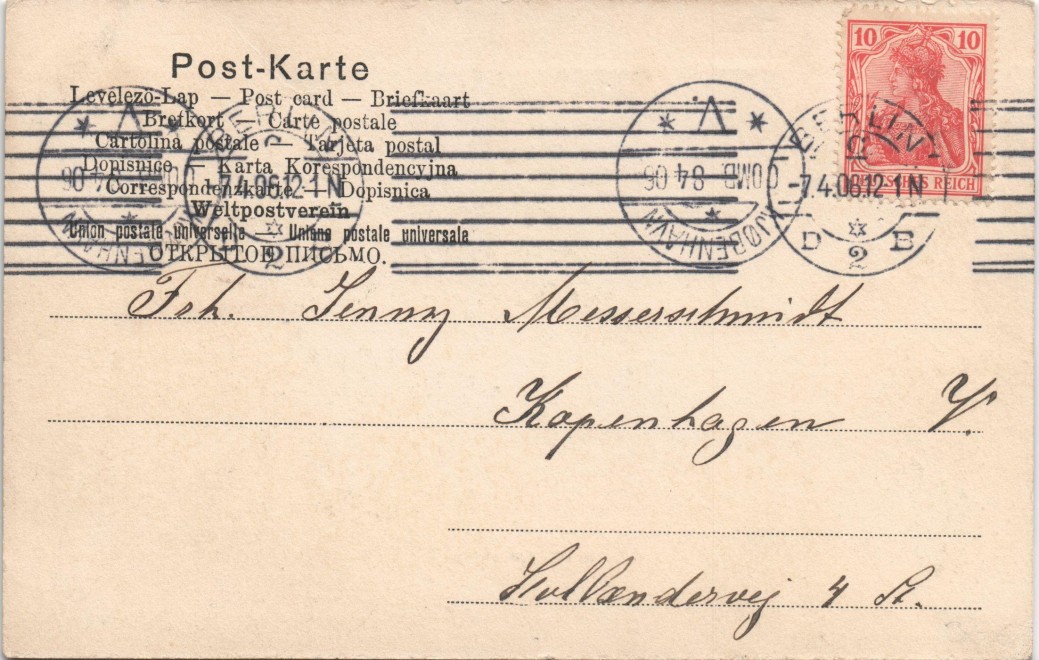 Post-Karte
Levelezö-Lap — Post card — Briefkaart
Brefkort — Carte postale
Cartolina postale — Tarjeta postal
Dopisnice — Karta Korespondencyjna
Correspondenzkarte — Dopisnica
Weltpostverein
Union postale universelle — Unione postale universale
ОТКРЫТОЕ ПИСЬМО.
10 10
DEUTSCHES REICH
BERLIN
-7.4.06.12-1N
2
KJØBENHAVN
OMB. 8 4 06
V.
BERLIN
-7.4.06.12-1N
2
Frk. Jenny Messerschmidt
Kopenhagen V.
Hollændervej 4 St.